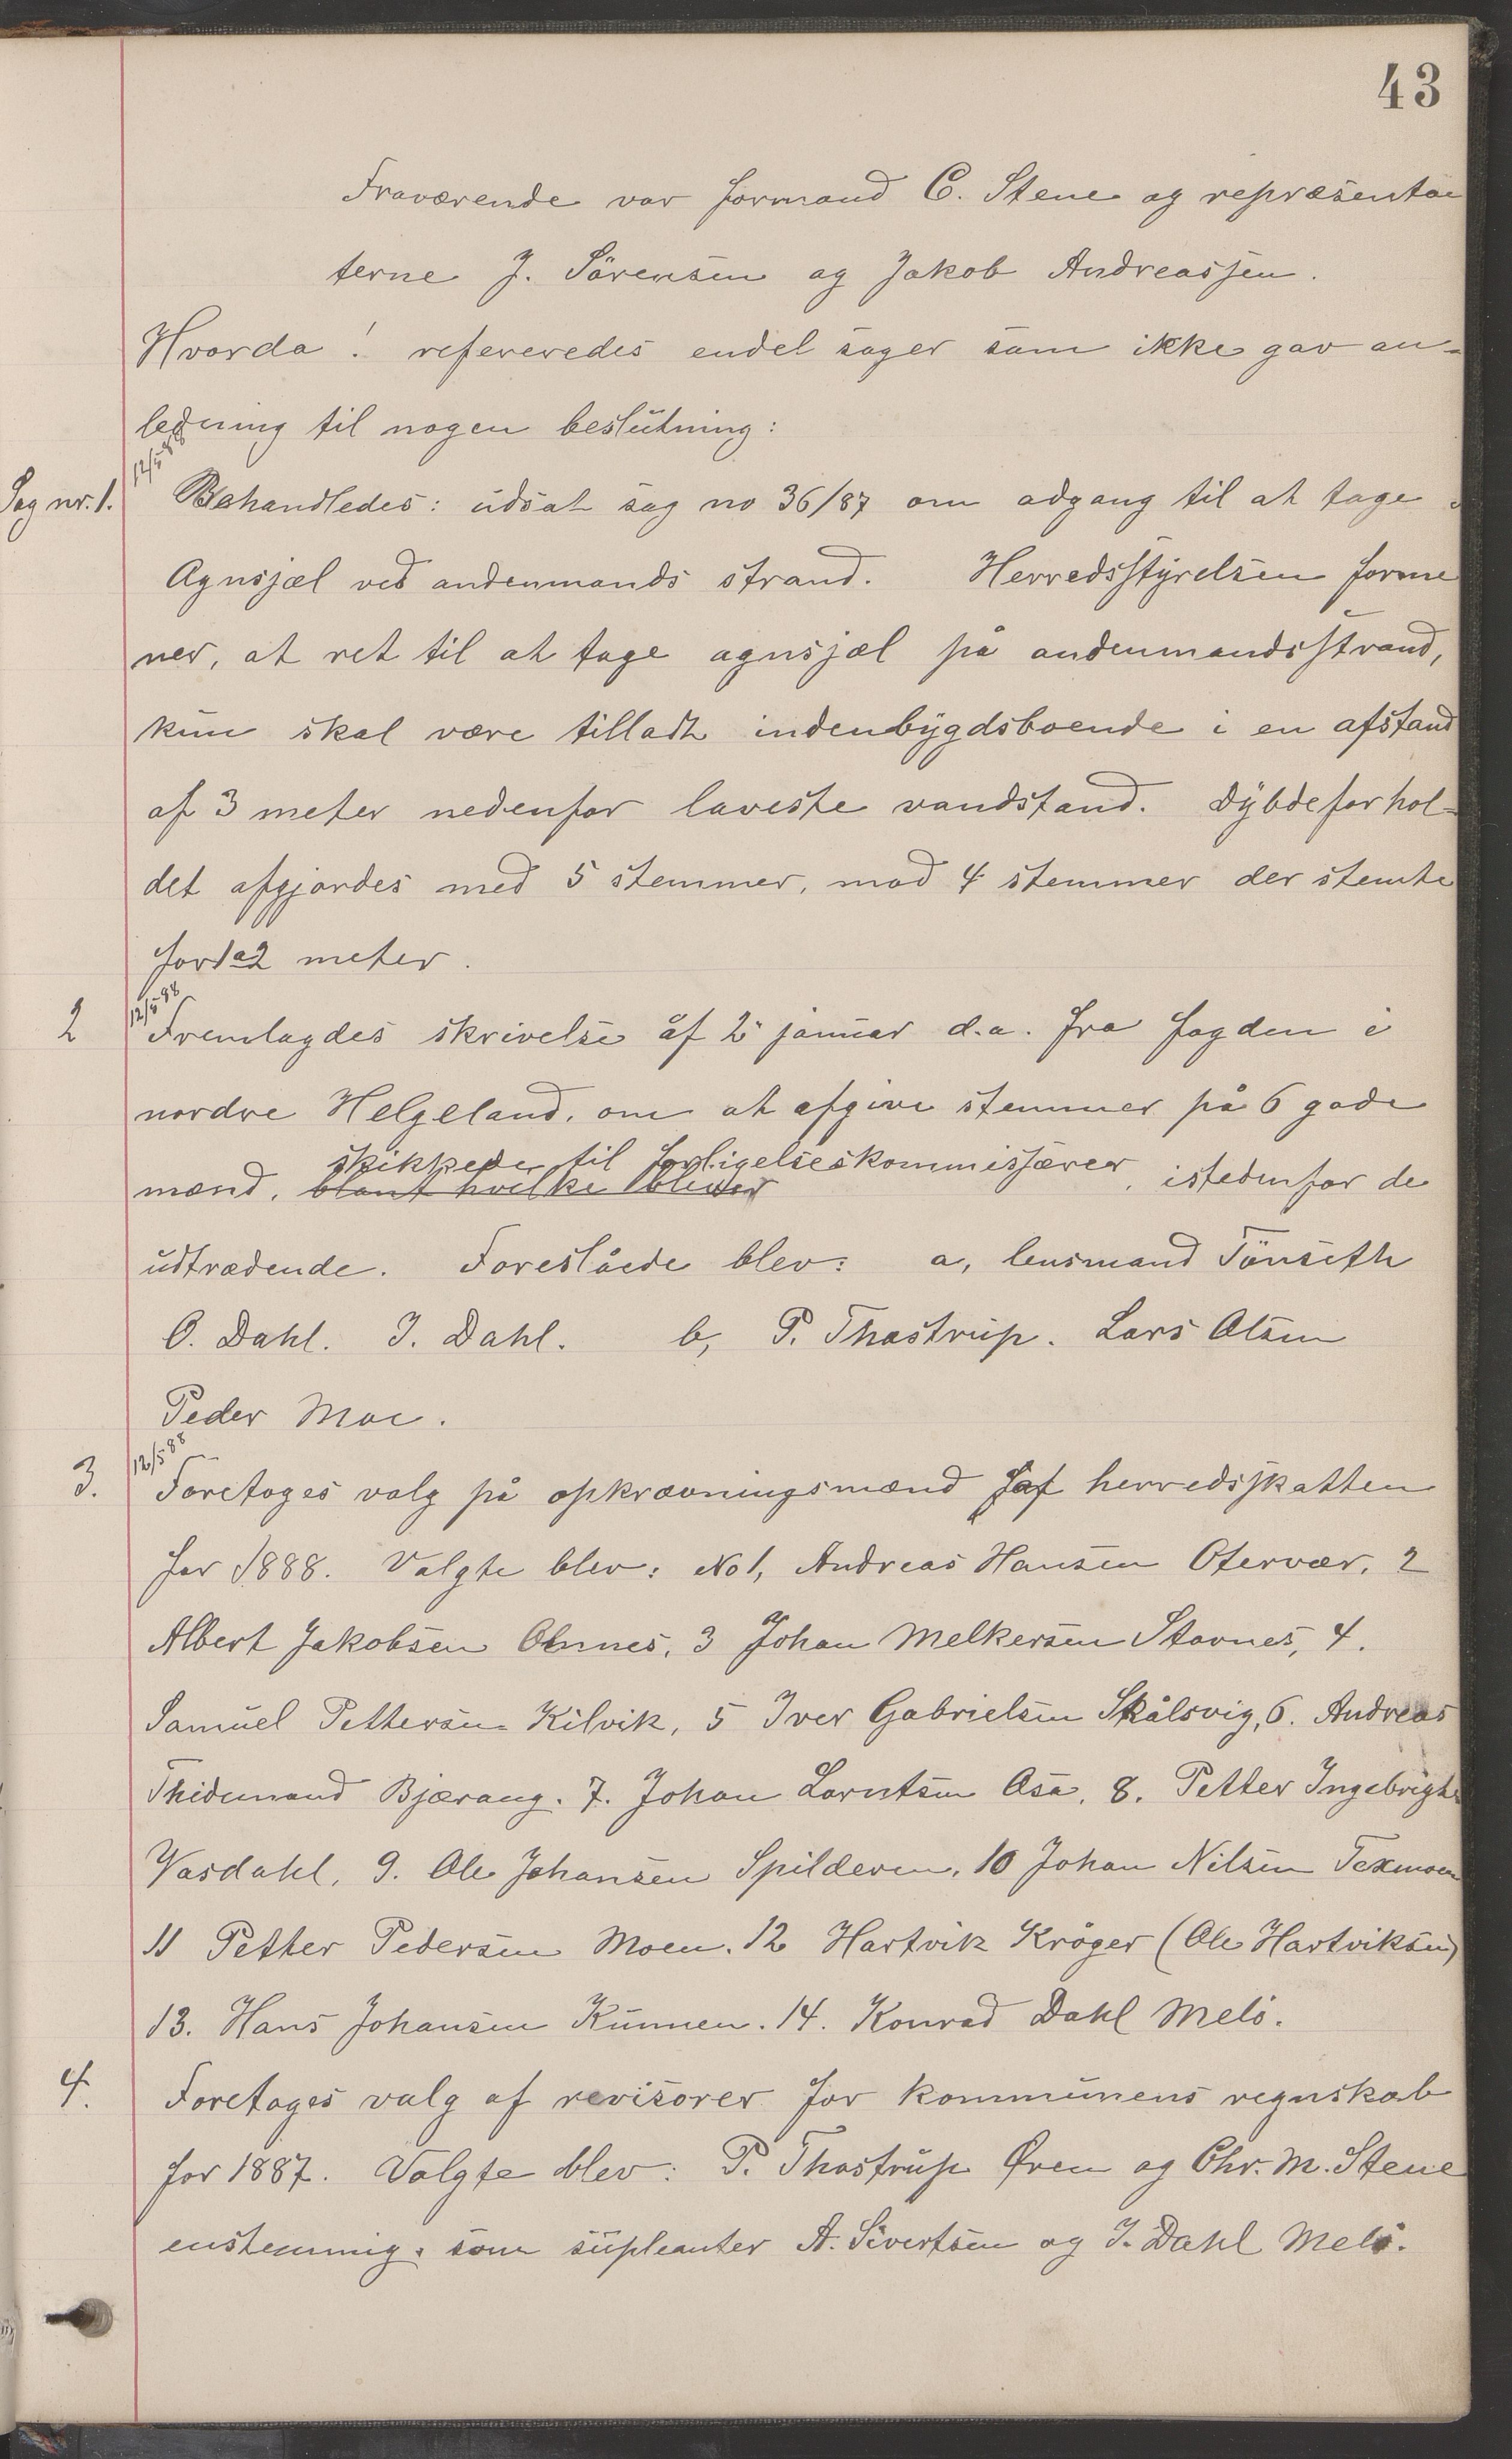 43
Fraværende var formand C. Stene og repræsentan
terne J. Sörensen og Jakob Andreassen.
Hvorda! refereredes endel sager som ikke gav an-
ledning til nogen beslutning:
12/5 88
Sag nr. 1. Behandledes: udsat sag no 36/87 om adgang til at tage
Agnsjæl ved andenmands strand. Herredsstyrelsen forme
ner, at ret til at tage agnsjæl på andenmandsstrand,
kun skal være tilladt indenbygdsboende i en afstand
af 3 meter nedenfor laveste vandstand. Dybdeforhol-
det afgjordes med 5 stemmer, mod 4 stemmer der stemte
for 1 a 2 meter.
12/5 88
2 Fremlagdes skrivelse af 2 januar d.a. fra fogden i
nordre Helgeland, om at afgive stemmer på 6 gode
skikkede til forligelseskommissærer
mænd, blant hvilke blever, istedenfor de
udtrædende. Foreslåede blev: a, lensmand Tönseth
O. Dahl. J. Dahl. b, P. Thastrup. Lars Olsen
Peder Moe.
12/5 88
3. Foretoges valg på opkrævningsmænd af herredsskatten
for 1888. Valgte blev: No 1, Andreas Hansen Otervær, 2
Albert Jakobsen Ønnes, 3 Johan Melkersen Stavnes, 4.
Samuel Pettersen Kilvik, 5 Iver Gabrielsen Skålsvig, 6. Andreas
Thidemand Bjærang. 7. Johan Lorntsen Åsa, 8. Petter Ingebrigts
Vasdahl, 9. Ole Johansen Spilderen, 10 Johan Nilsen Texmoen
11 Petter Pedersen Moen. 12 Hartvik Kröger (Ole Hartviksen)
13. Hans Johansen Kunnen. 14. Konrad Dahl Melö.
4. Foretoges valg af revisorer for kommunens regnskab
for 1887. Valgte blev: P. Thastrup Øren og Chr. M. Stene
enstemmig, som supleanter A. Sivertsen og J. Dahl Melö.